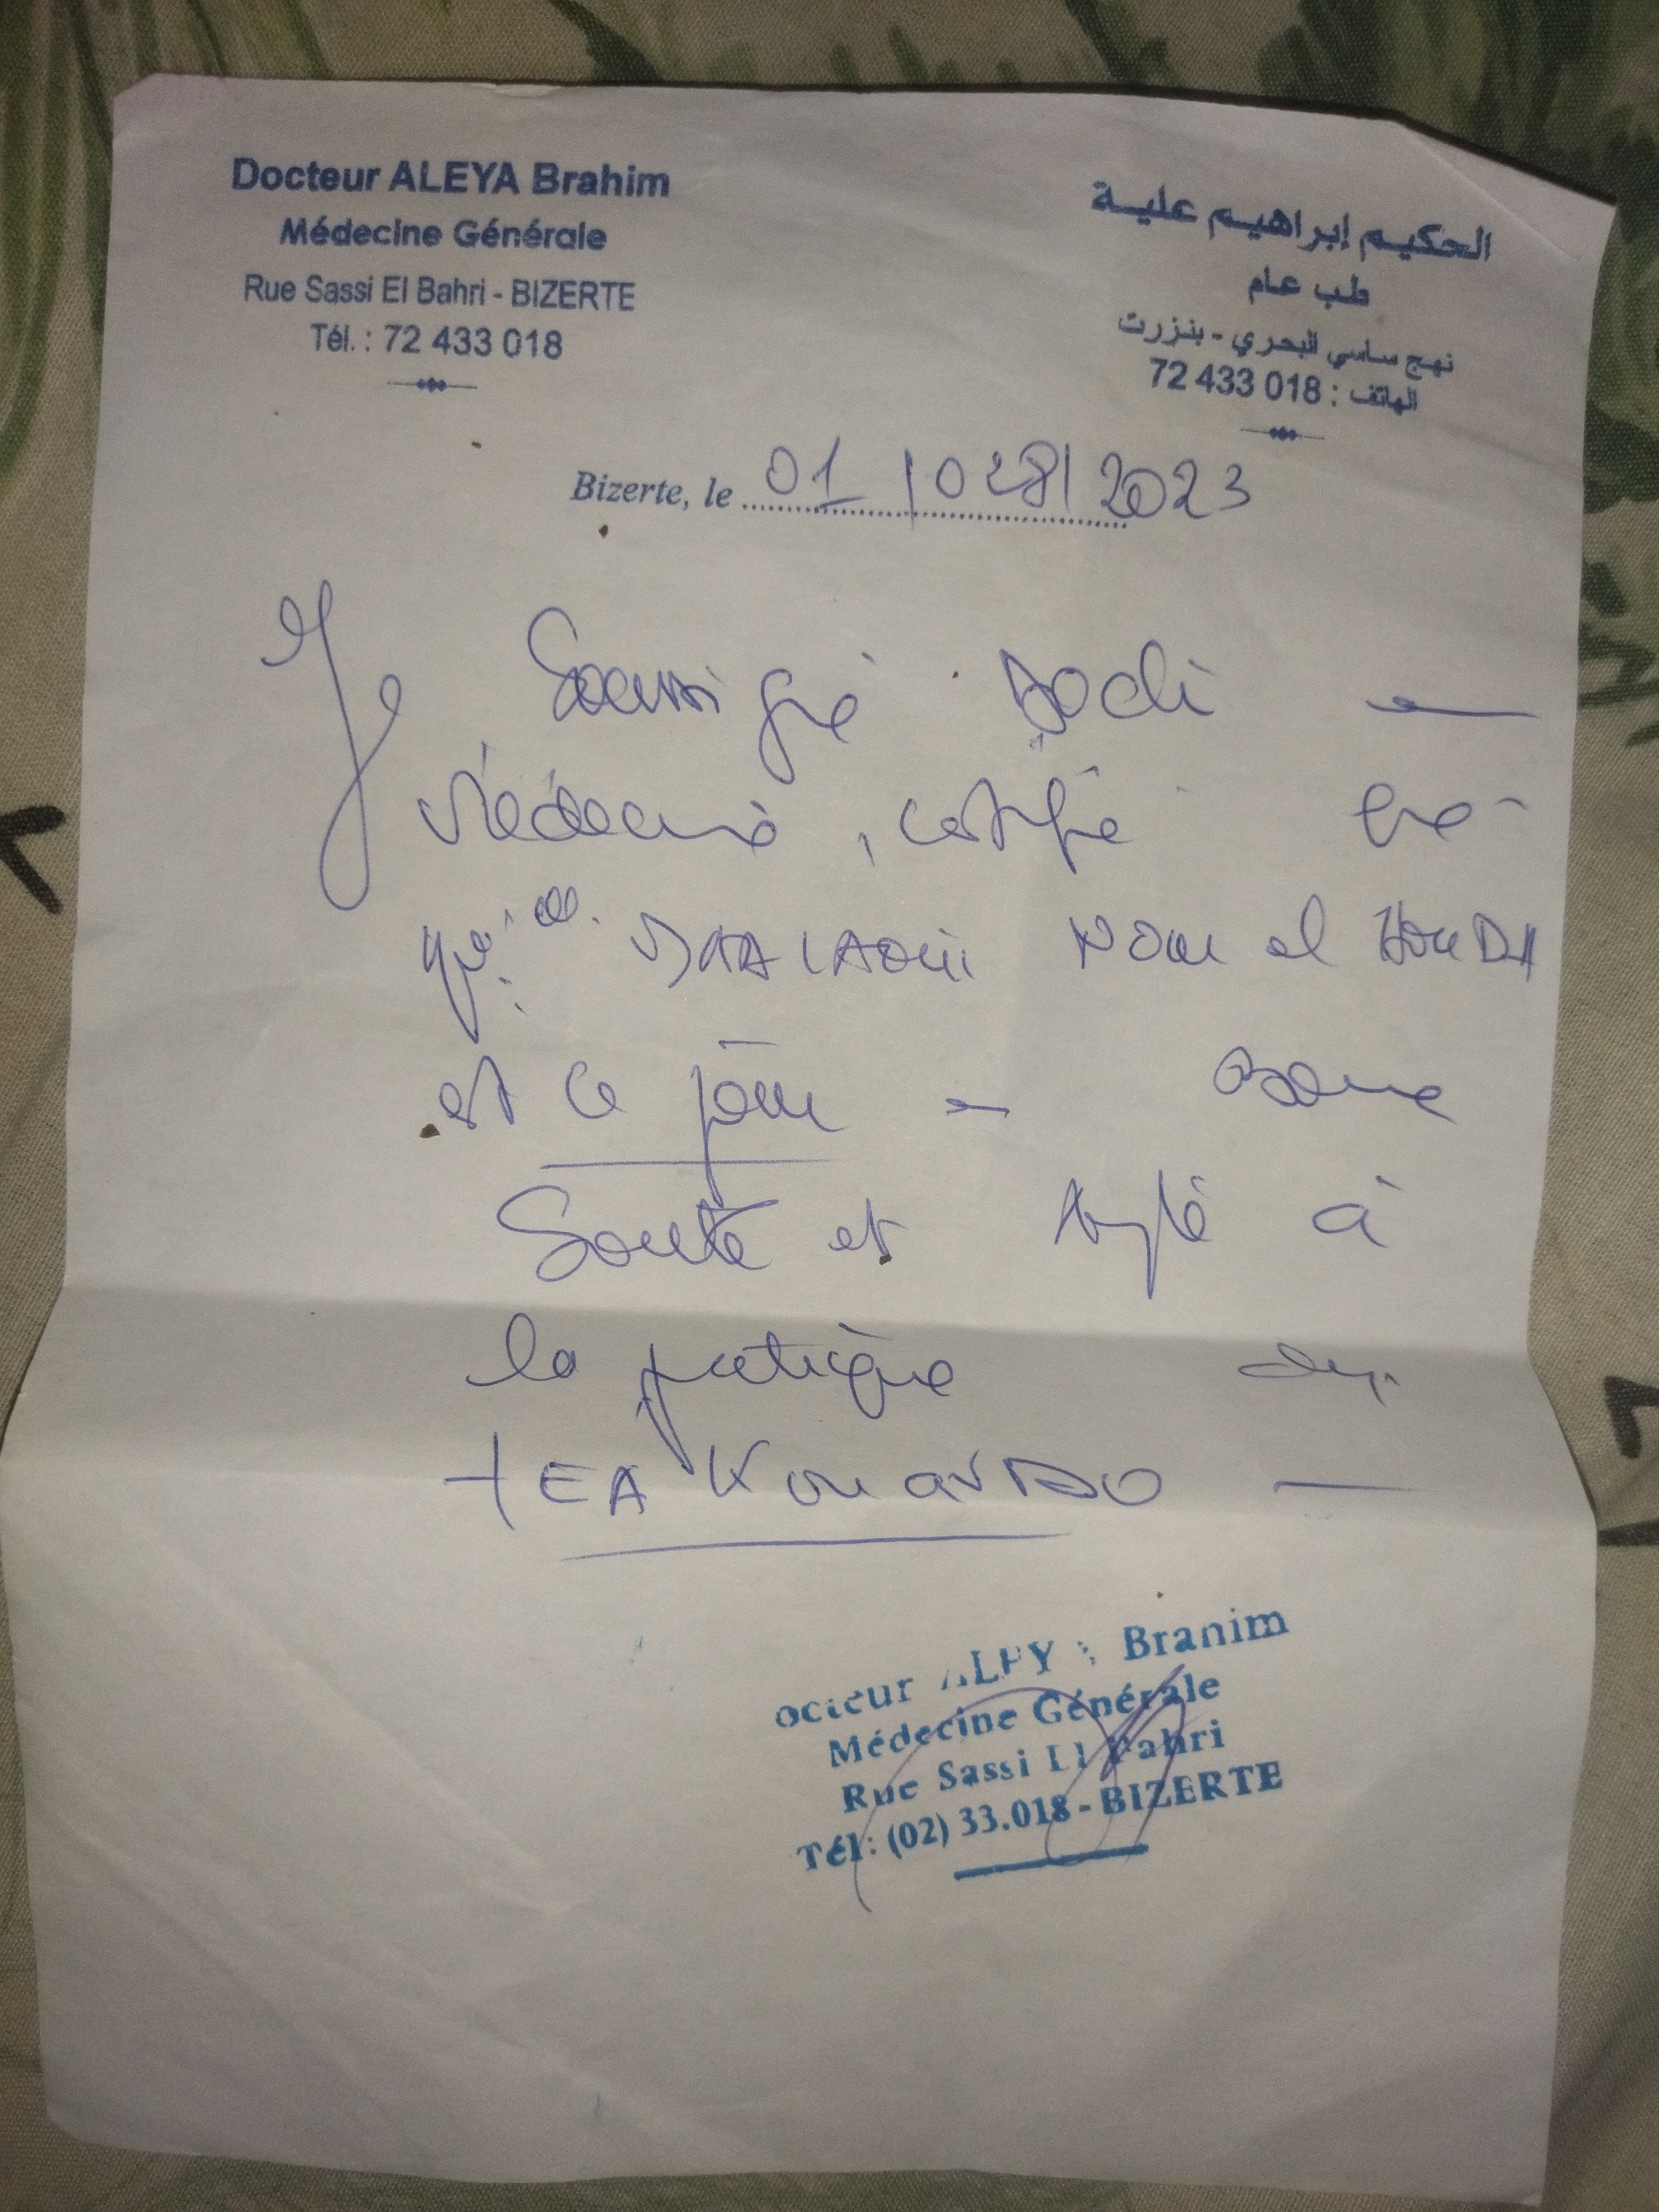 Docteur ALEYA Brahim
Médecine Générale
Rue Sassi El Bahri - BIZERTE
Tél. : 72 433 018
الحكيم إبراهيم علية
طب عام
نهج ساسي البحري - بنزرت
الهاتف : 72 433 018
Bizerte, le 01 / 2023
Je Soussigné
Médecin, certifie
que NOUR el HOUDA
est ce jour - bonne
Santé et apte à
la pratique du
TEAKWONDO
octeur ALEY Brahim
Médecine Générale
Rue Sassi El Bahri
Tél: (02) 33.018 - BIZERTE